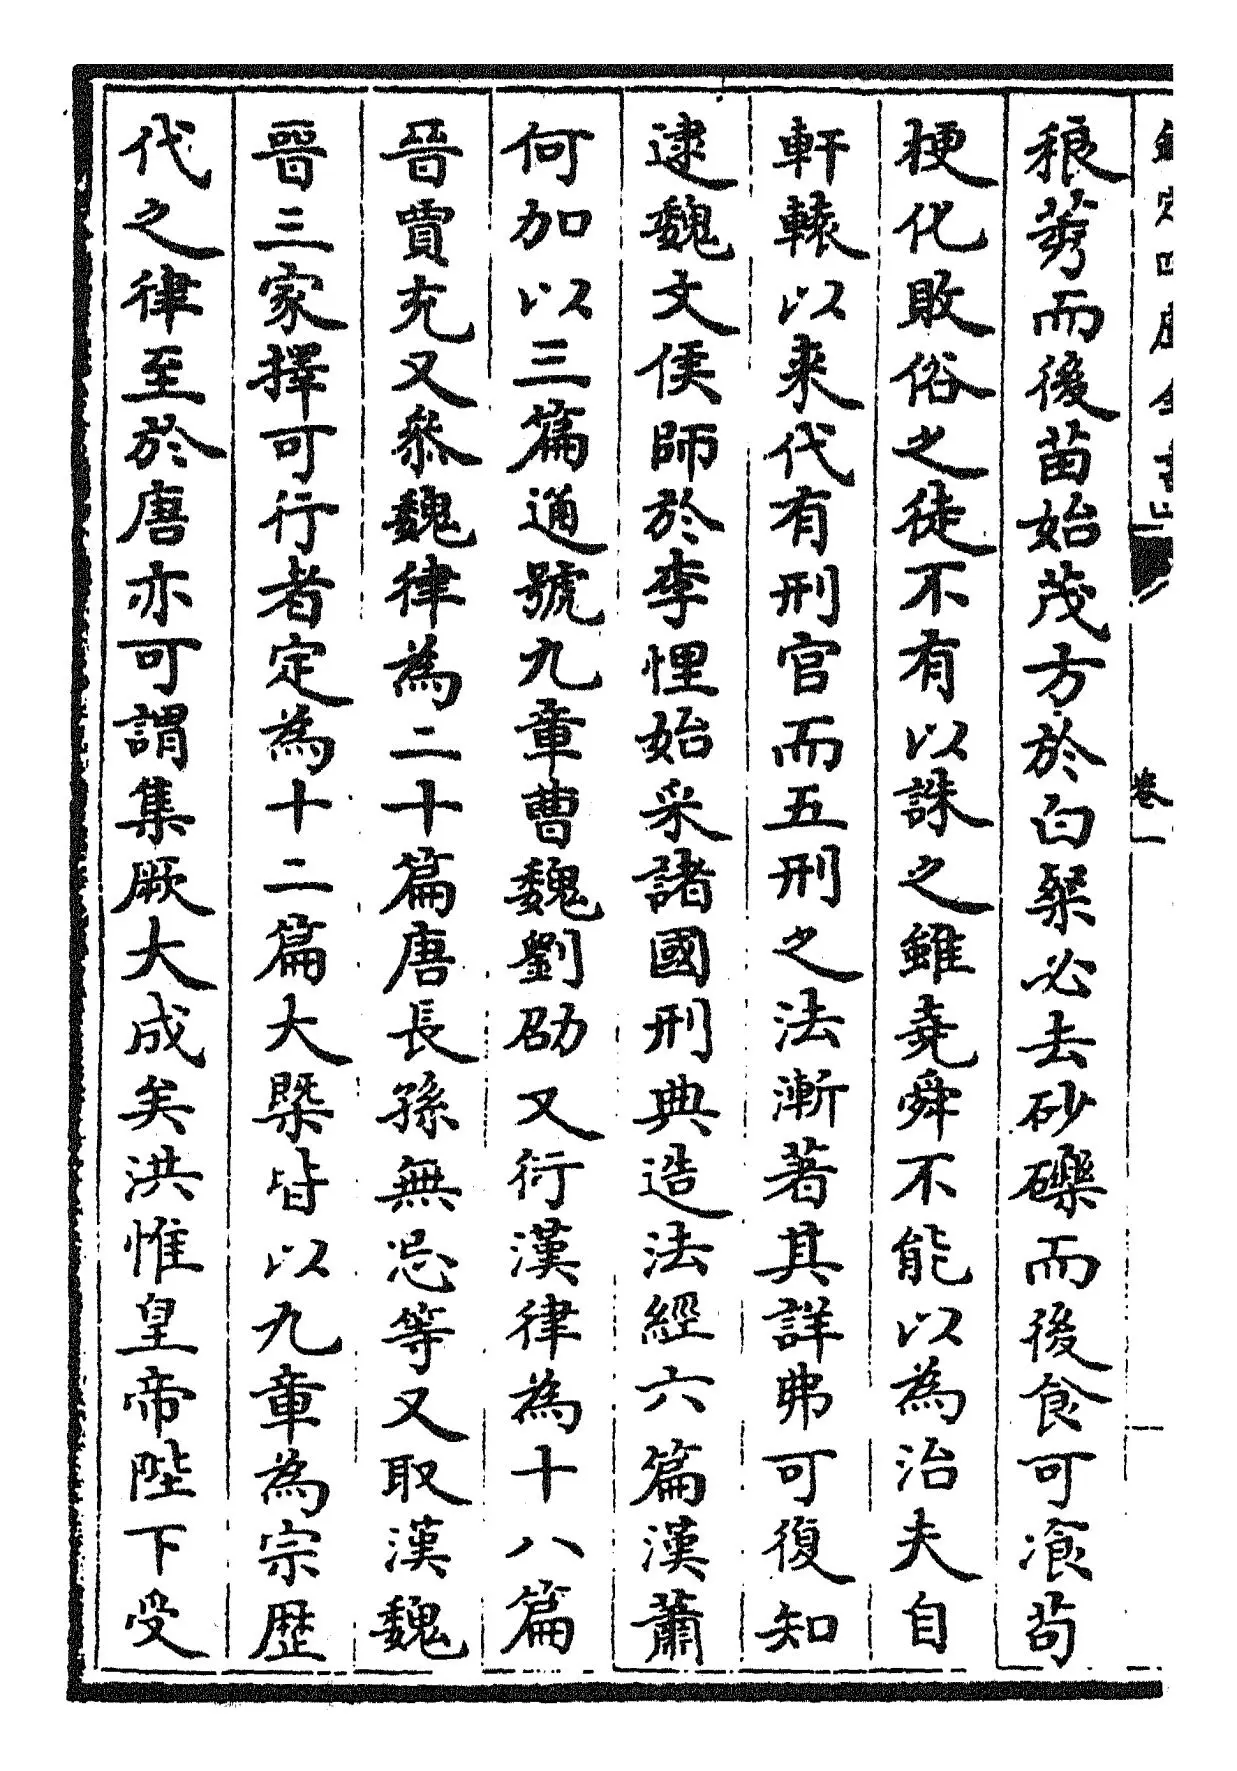 欽定四庫全書
卷一
稂莠而後苗始茂方於白粲必去砂礫而後食可飡苟
梗化敗俗之徒不有以誅之雖堯舜不能以為治夫自
軒轅以来代有刑官而五刑之法漸著其詳弗可復知
逮魏文侯師於李悝始采諸國刑典造法經六篇漢蕭
何加以三篇通號九章曹魏劉劭又衍漢律為十八篇
晉賈充又叅魏律為二十篇唐長孫無忌等又取漢魏
晉三家擇可行者定為十二篇大槩皆以九章為宗歴
代之律至於唐亦可謂集厥大成矣洪惟皇帝陛下受